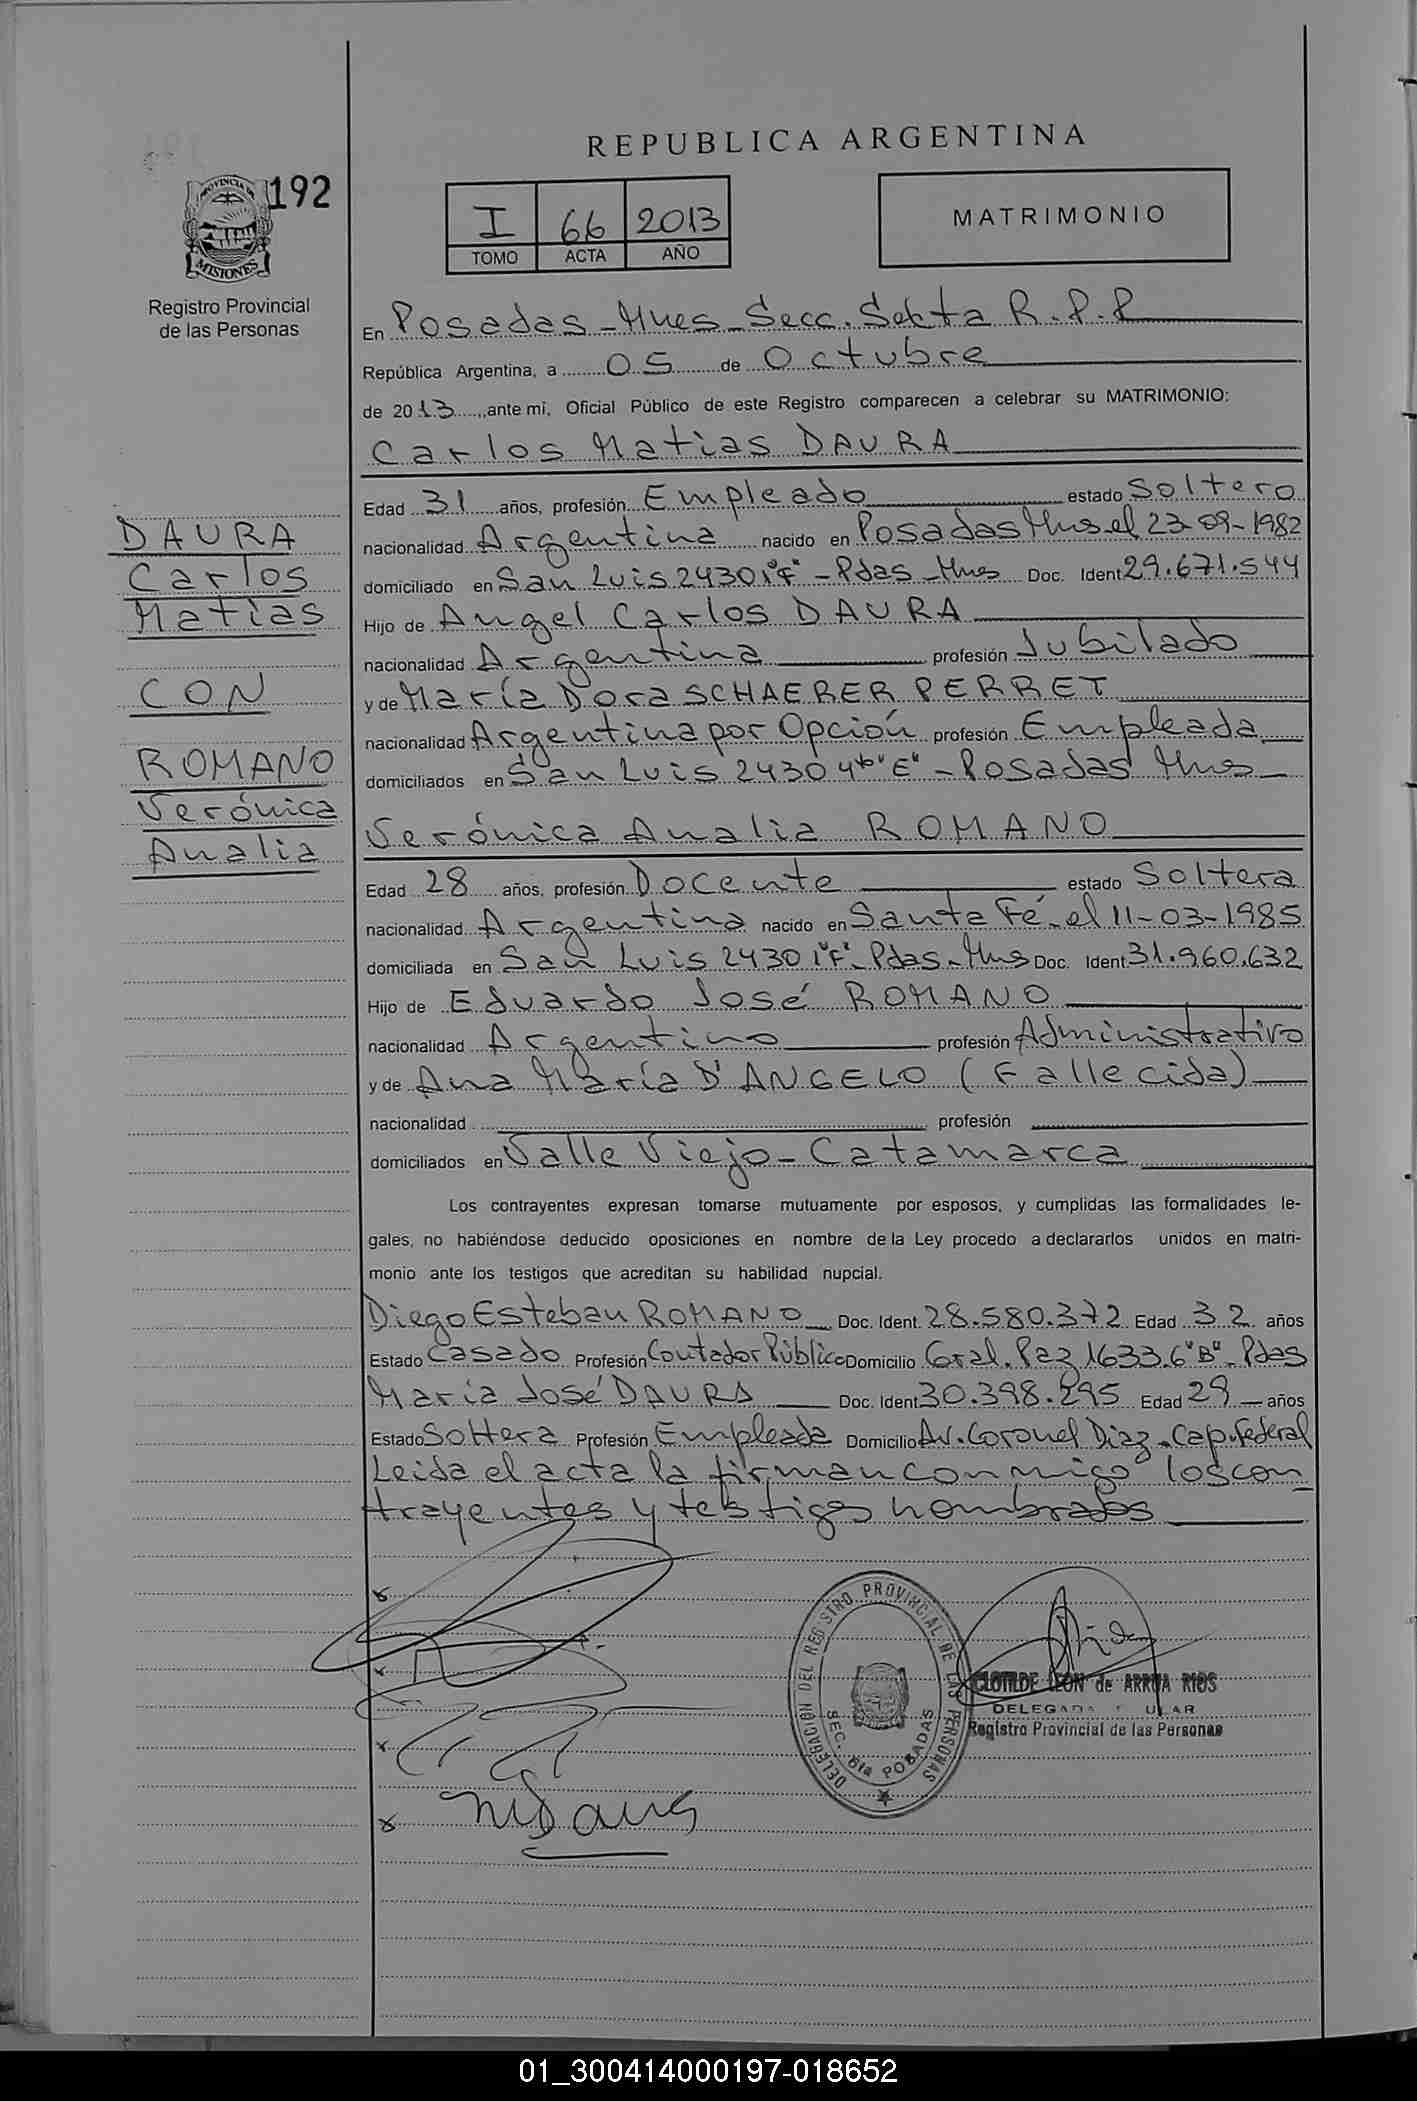 REPUBLICA ARGENTINA
192
PROVINCIA DE
MISIONES
Registro Provincial
de las Personas
I 66 2013
TOMO ACTA AÑO
MATRIMONIO
En Posadas - Mnes - Secc. Sexta R.P.P
República Argentina, a 05 de Octubre
de 2013, ante mi, Oficial Público de este Registro comparecen a celebrar su MATRIMONIO:
Carlos Matias DAURA
Edad 31 años, profesión Empleado estado Soltero
nacionalidad Argentina nacido en Posadas Mns el 23-09-1982
domiciliado en San Luis 2430 1° "F" - Pdas - Mnes Doc. Ident 29.671.544
Hijo de Angel Carlos DAURA
nacionalidad Argentina profesión Jubilado
y de María Dora SCHAERER PERRET
nacionalidad Argentina por Opción profesión Empleada
domiciliados en San Luis 2430 4to "E" - Posadas Mnes
Verónica Analia ROMANO
Edad 28 años, profesión Docente estado Soltera
nacionalidad Argentina nacido en Santa Fé - el 11-03-1985
domiciliada en San Luis 2430 1° "F" - Pdas - Mns Doc. Ident. 31.960.632
Hijo de Eduardo José ROMANO
nacionalidad Argentino profesión Administrativo
y de Ana María D'ANGELO (Fallecida)
nacionalidad profesión
domiciliados en Valle Viejo - Catamarca
Los contrayentes expresan tomarse mutuamente por esposos, y cumplidas las formalidades le-
gales, no habiéndose deducido oposiciones en nombre de la Ley procedo a declararlos unidos en matri-
monio ante los testigos que acreditan su habilidad nupcial.
Diego Esteban ROMANO Doc. Ident. 28.580.372 Edad 32 años
Estado Casado Profesión Contador Público Domicilio Gral. Paz 1633 6° "B" - Pdas
María José DAURA Doc. Ident 30.398.295 Edad 29 años
Estado Soltera Profesión Empleada Domicilio Av. Coronel Diaz - Cap. Federal
Leida el acta la firman conmigo los con
trayentes y testigos nombrados
DAURA
Carlos
Matias
CON
ROMANO
Verónica
Analia
DELEGACIÓN DEL REGISTRO PROVINCIAL DE LAS PERSONAS
SEC. 6ta POSADAS
CLOTILDE LEON de ARRUA RIOS
Registro Provincial de las Personas
01_300414000197-018652